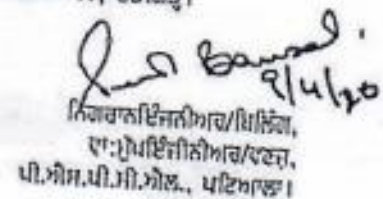 Bansal.
9/4/20
ਨਿਗਰਾਨਇੰਜਨੀਅਰ/ਬਿਲਿੰਗ,
ਦਾ:ਮੁੱਖਇੰਜੀਨੀਅਰ/ਵਣਜ,
ਪੀ.ਐਸ.ਪੀ.ਸੀ.ਐਲ., ਪਟਿਆਲਾ।